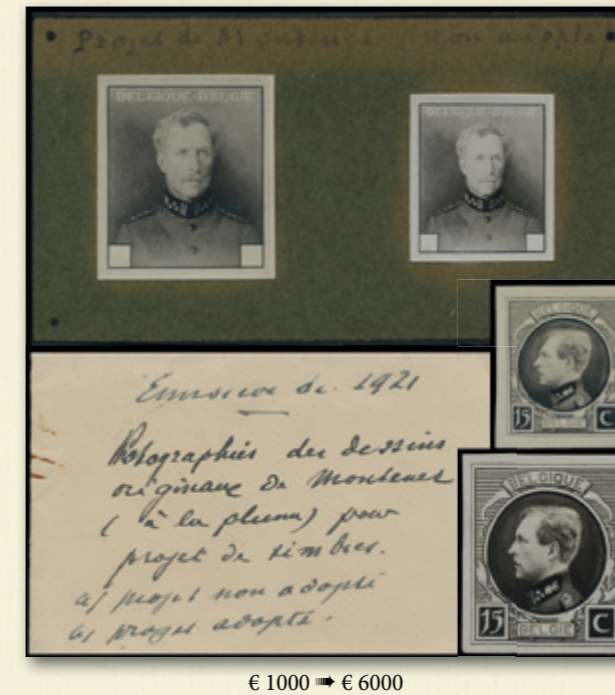 Projet de Montenez (non adopté)
BELGIQUE-BELGIË
BELGIQUE-BELGIË
BELGIQUE
15 C
BELGIË
Emission de 1921
Photographies des dessins
originaux de Montenez
(à la plume) pour
projet de timbres.
a) projet non adopté
b) projet adopté.
BELGIQUE
15 C
BELGIË
€ 1000 ➠ € 6000